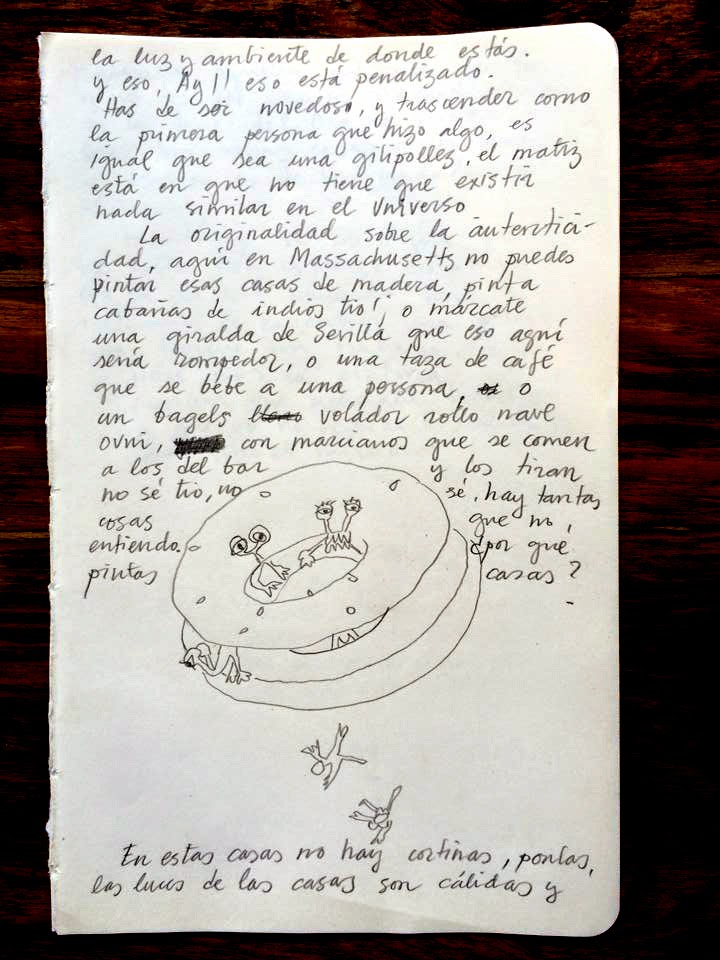 la luz y ambiente de donde estás.
y eso, Ay!! eso está penalizado.
Has de ser novedoso, y trascender como
la primera persona que hizo algo, es
igual que sea una gilipollez, el matiz
está en que no tiene que existir
nada similar en el Universo
La originalidad sobre la autentici-
dad, aquí en Massachusetts no puedes
pintar esas casas de madera, pinta
cabañas de indios tio!, o márcate
una giralda de Sevilla que eso aquí
sería rompedor, o una taza de café
que se bebe a una persona, o
un bagels volador rollo nave
ovni, con marcianos que se comen
a los del bar y los tiran
no sé tio, no sé, hay tantas
cosas que no,
entiendo. ¿por qué
pintas casas?
En estas casas no hay cortinas, pontas,
las luces de las casas son cálidas y